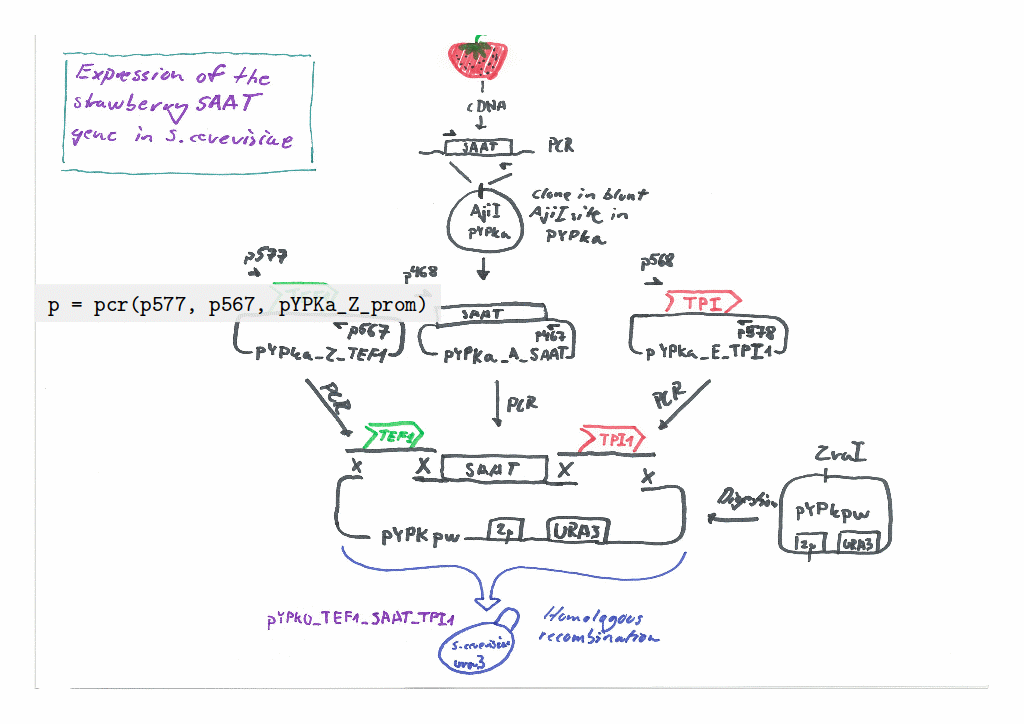 Expression of the
strawberry SAAT
gene in S. cerevisiae
cDNA
SAAT
PCR
AjiI
pYPKa
Clone in blunt
AjiI site in
pYPKa
p577
p468
p568
p = pcr(p577, p567, pYPKa_Z_prom)
SAAT
TPI
p567
p467
p578
pYPka_Z_TEF1
pYPKa_A_SAAT
pYPka_E_TPI1
PCR
PCR
PCR
TEF1
TPI1
X
X
SAAT
X
X
ZraI
Digestion
pYPKpw
2µ
URA3
pYPKpw
2µ
URA3
pYPK0_TEF1_SAAT_TPI1
Homologous
recombination
S. cerevisiae
ura3